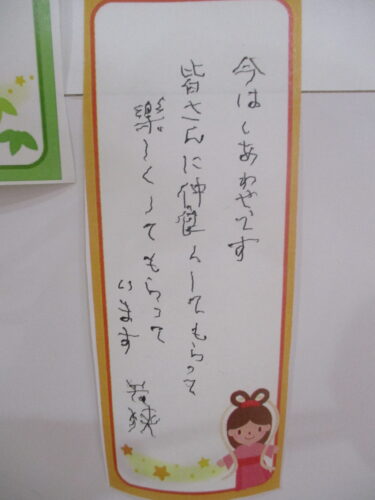 今はしあわせです
皆さんに仲良くしてもらって
楽しくしてもらって
います
若狭